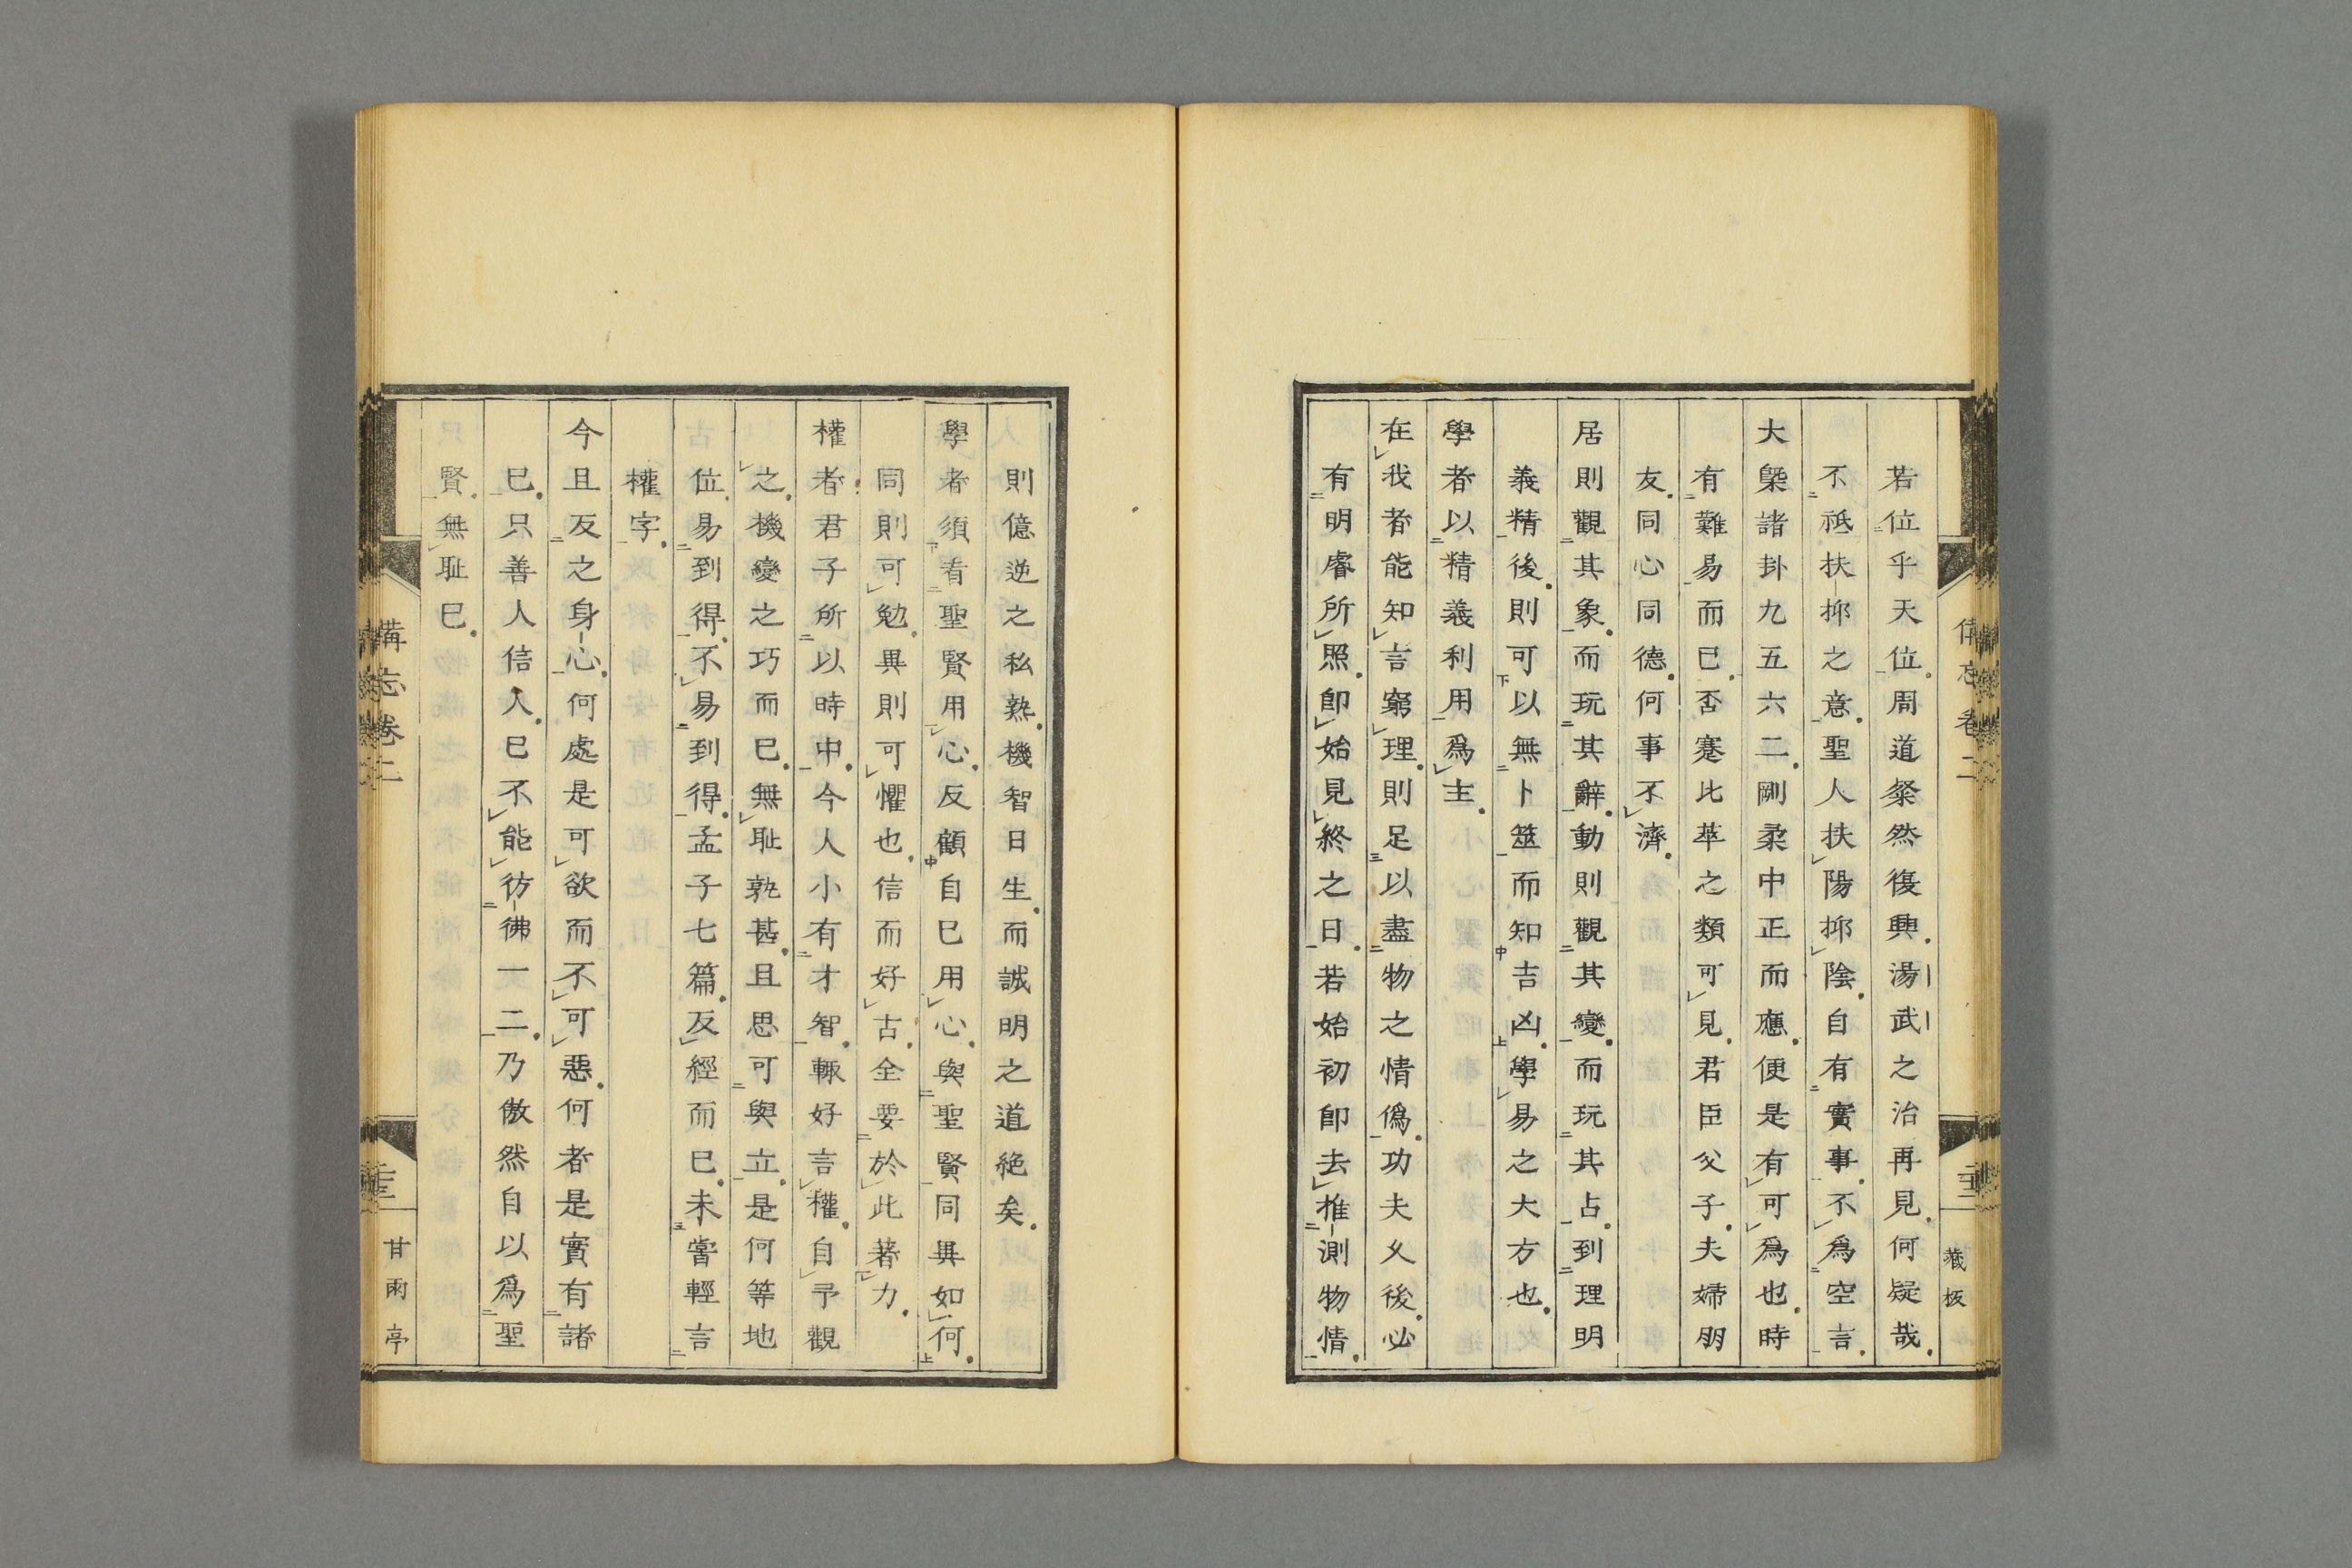 備忘卷二
藏板
若位乎天位周道粲然復興湯武之治再見何疑哉
不祗扶抑之意聖人扶陽抑陰自有實事不爲空言
大槩諸卦九五六二剛柔中正而應便是有可爲也時
有難易而已否蹇比萃之類可見君臣父子夫婦朋
友同心同德何事不濟
居則觀其象而玩其辭動則觀其變而玩其占到理明
義精後則可以無卜筮而知吉凶學易之大方也
學者以精義利用爲主
在我者能知言窮理則足以盡物之情僞功夫久後必
有明睿所照卽始見終之日若始初卽去推測物情
則億逆之私熟機智日生而誠明之道絶矣
學者須看聖賢用心反顧自已用心與聖賢同異如何
同則可勉異則可懼也信而好古全要於此著力
權者君子所以時中今人小有才智輒好言權自予觀
之機變之巧而已無耻孰甚且思可與立是何等地
位易到得不易到得孟子七篇反經而已未嘗輕言
權字
今且反之身心何處是可欲而不可惡何者是實有諸
已只善人信人已不能彷彿一二乃傲然自以爲聖
賢無耻已
備忘卷二
甘雨亭